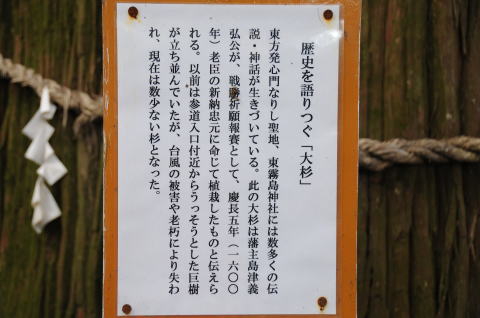 歴史を語りつぐ「大杉」
東方発心門なりし聖地、東霧島神社には数多くの伝
説・神話が生きづいている。此の大杉は藩主島津義
弘公が、戦勝祈願報賽として、慶長五年（一六〇〇
年）老臣の新納忠元に命じて植栽したものと伝えら
れる。以前は参道入口付近からうっそうとした巨樹
が立ち並んでいたが、台風の被害や老朽により失わ
れ、現在は数少ない杉となった。